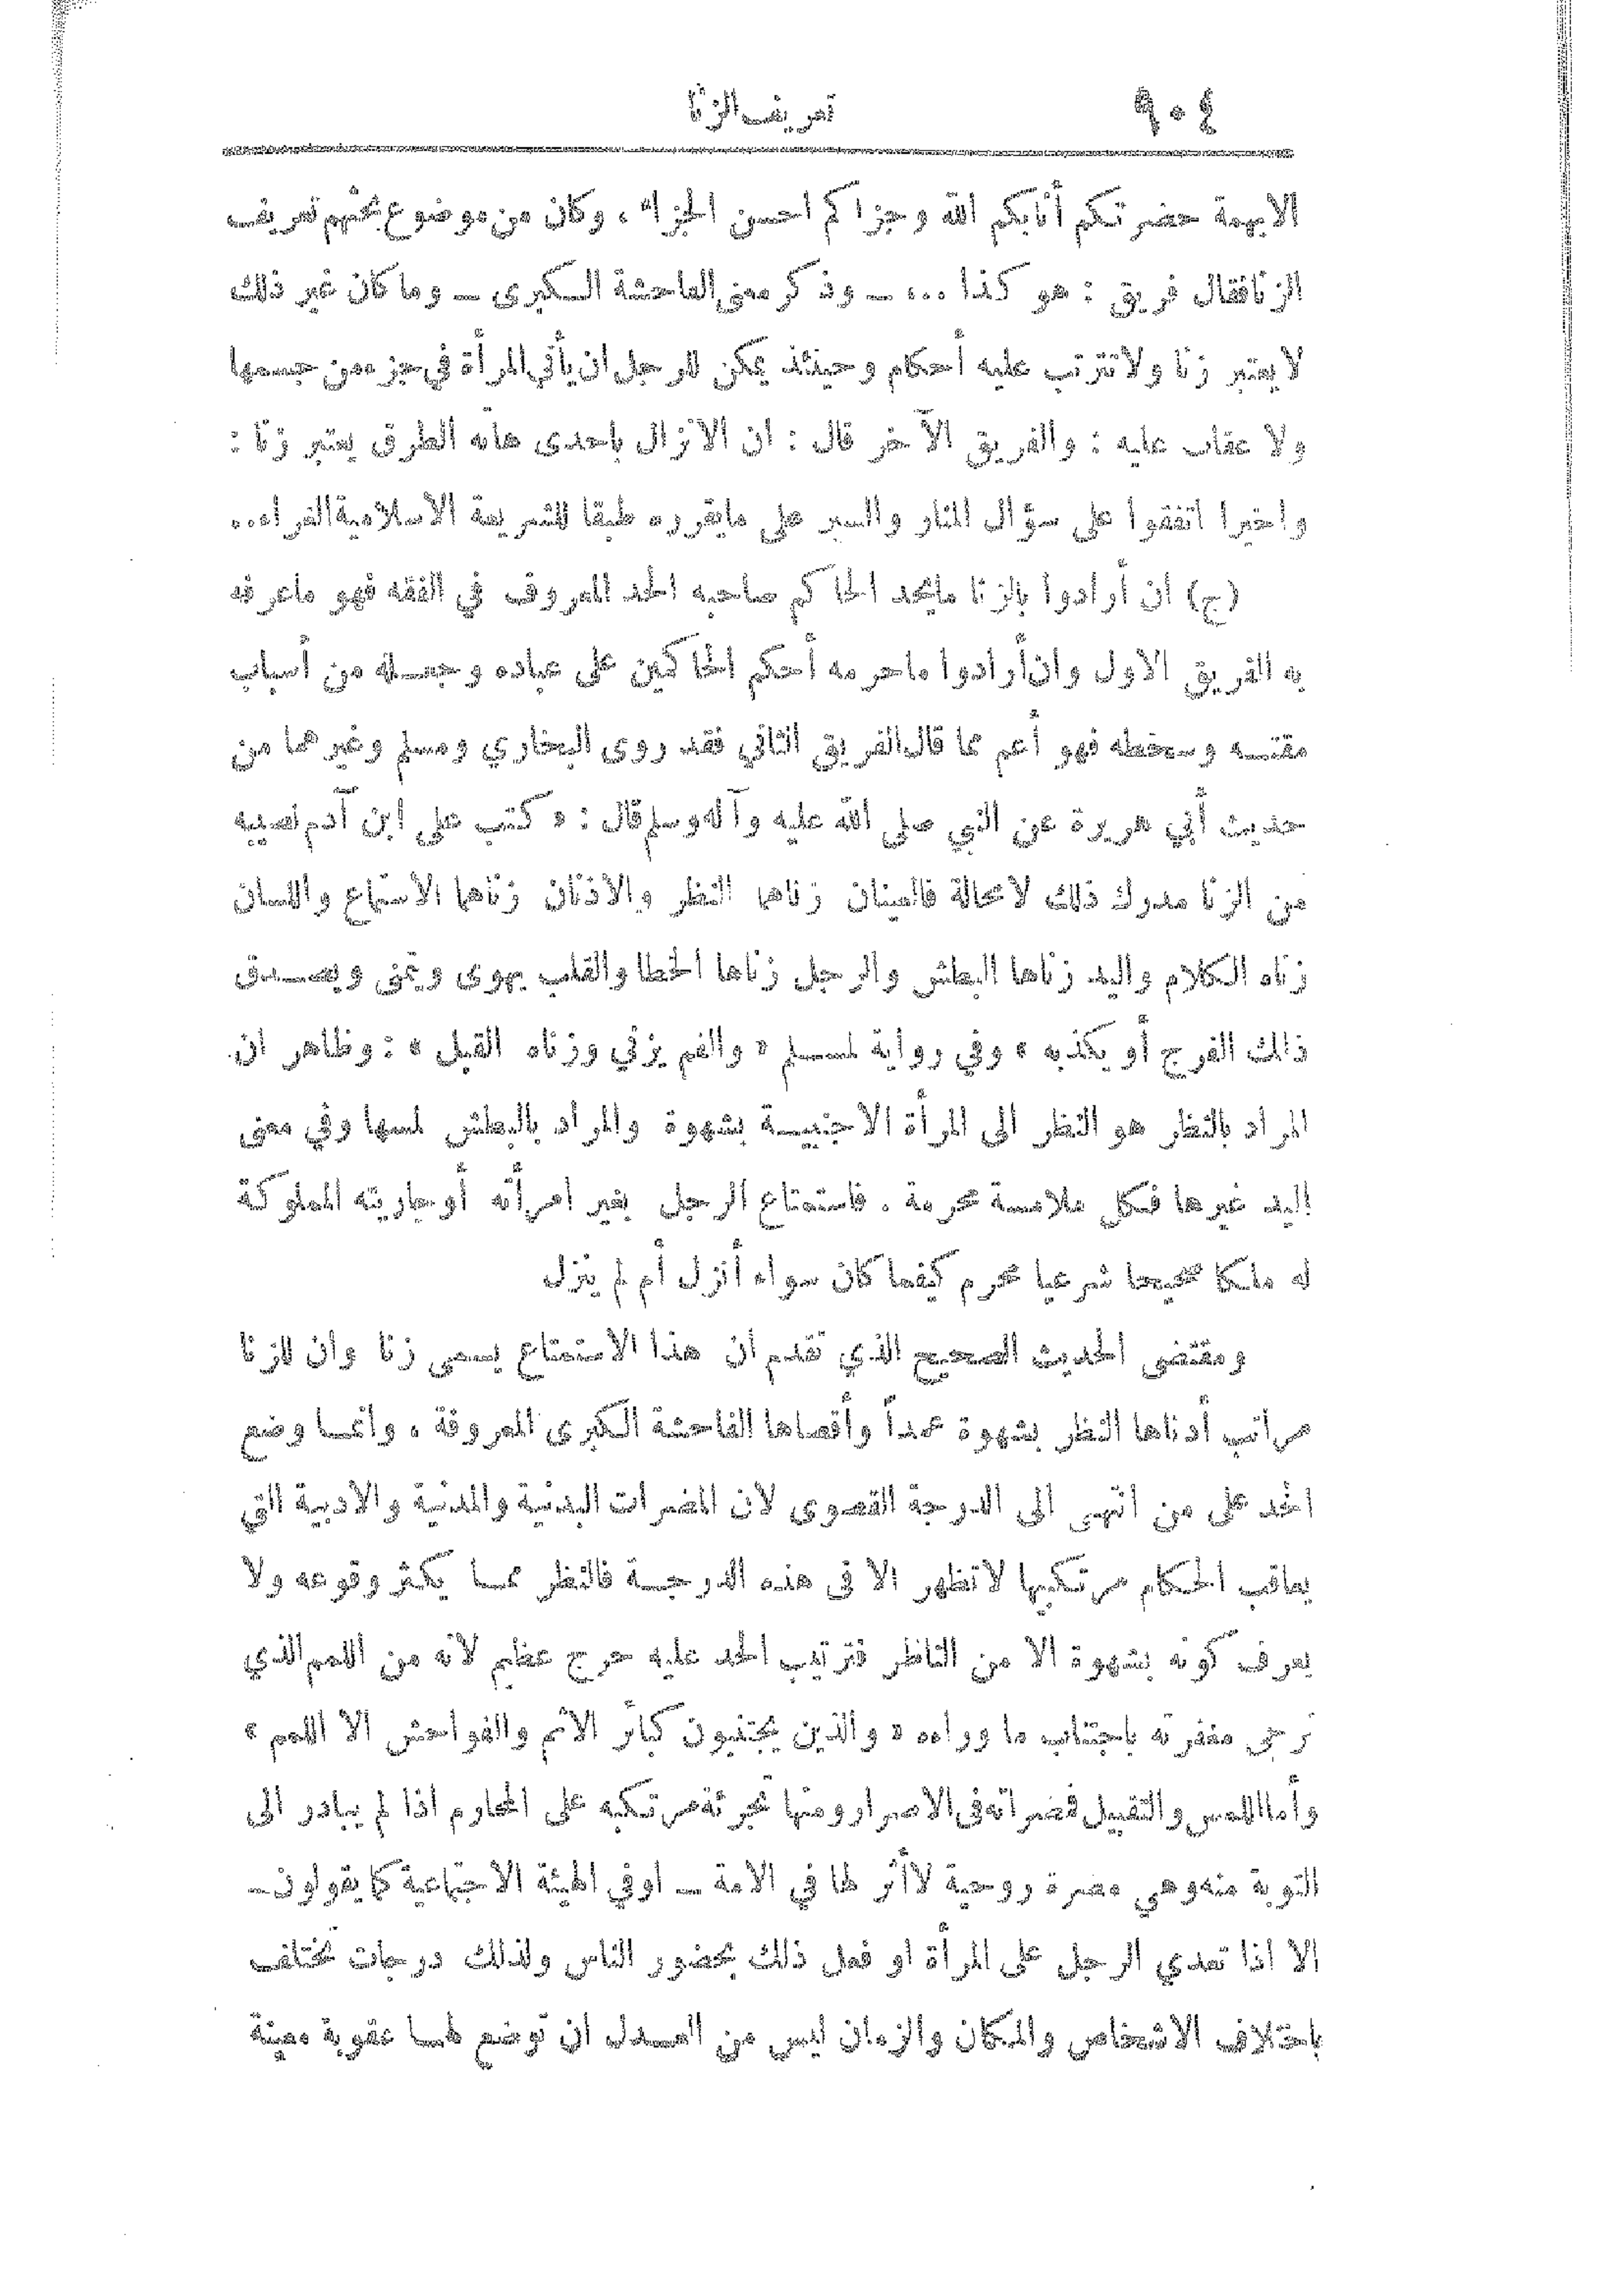 ٩٠٤ تعريف الزنا
الابهمة حضرتكم أثابكم الله وجزاكم احسن الجزاء ، وكان من موضوع بحثهم تعريف
الزنا فقال فريق : هو كذا ... ــ وذكر معنى الفاحشة الكبرى ــ وما كان غير ذلك
لا يعتبر زنا ولا تترتب عليه أحكام وحينئذ يمكن للرجل ان يأتي المرأة في جزء من جسمها
ولا عقاب عليه : والفريق الآخر قال : ان الانزال باحدى هاته الطرق يعتبر زنا :
واخيرا اتفقوا على سؤال المنار والسير على ما يقرره طبقا للشريعة الاسلامية الغراء..
(ج) ان أرادوا بالزنا ما يحد الحاكم صاحبه الحد المعروف في الفقه فهو ما عرفه
به الفريق الاول وان أرادوا ما حرمه أحكم الحاكمين على عباده وجعله من أسباب
مقته وسخطه فهو أعم مما قال الفريق الثاني فقد روى البخاري ومسلم وغيرهما من
حديث أبي هريرة عن النبي صلى الله عليه وآله وسلم قال : « كتب على ابن آدم نصيبه
من الزنا مدرك ذلك لا محالة فالعينان زناهما النظر والاذنان زناهما الاستماع واللسان
زناه الكلام واليد زناها البطش والرجل زناها الخطا والقلب يهوى ويتمنى ويصدق
ذلك الفرج أو يكذبه » وفي رواية لمسلم « والفم يزني وزناه القبل » : وظاهر ان
المراد بالنظر هو النظر الى المرأة الاجنبية بشهوة والمراد بالبطش لمسها وفي معنى
اليد غيرها فكل ملامسة محرمة . فاستمتاع الرجل بغير امرأته أو جاريته المملوكة
له ملكا صحيحا شرعيا محرم كيفما كان سواء أنزل أم لم ينزل
ومقتضى الحديث الصحيح الذي تقدم ان هذا الاستمتاع يسمى زنا وان للزنا
مراتب أدناها النظر بشهوة عمداً وأقصاها الفاحشة الكبرى المعروفة ، وانما وضع
الحد على من انتهى الى الدرجة القصوى لان المضرات البدنية والمدنية والادبية التي
يعاقب الحكام مرتكبها لا تظهر الا فى هذه الدرجة فالنظر مما يكثر وقوعه ولا
يعرف كونه بشهوة الا من الناظر فترتيب الحد عليه حرج عظيم لانه من اللمم الذي
ترجى مغفرته باجتناب ما وراءه « والذين يجتنبون كبائر الاثم والفواحش الا اللمم »
وأما اللمس والتقبيل فضراته فى الاصرار ومنها تجرئة مرتكبه على المحارم اذا لم يبادر الى
التوبة منه وهي مضرة روحية لا أثر لها في الامة ــ او في الهيئة الاجتماعية كما يقولون ــ
الا اذا تعدي الرجل على المرأة او فعل ذلك بحضور الناس ولذلك درجات تختلف
باختلاف الاشخاص والمكان والزمان ليس من العدل ان توضع لها عقوبة معينة